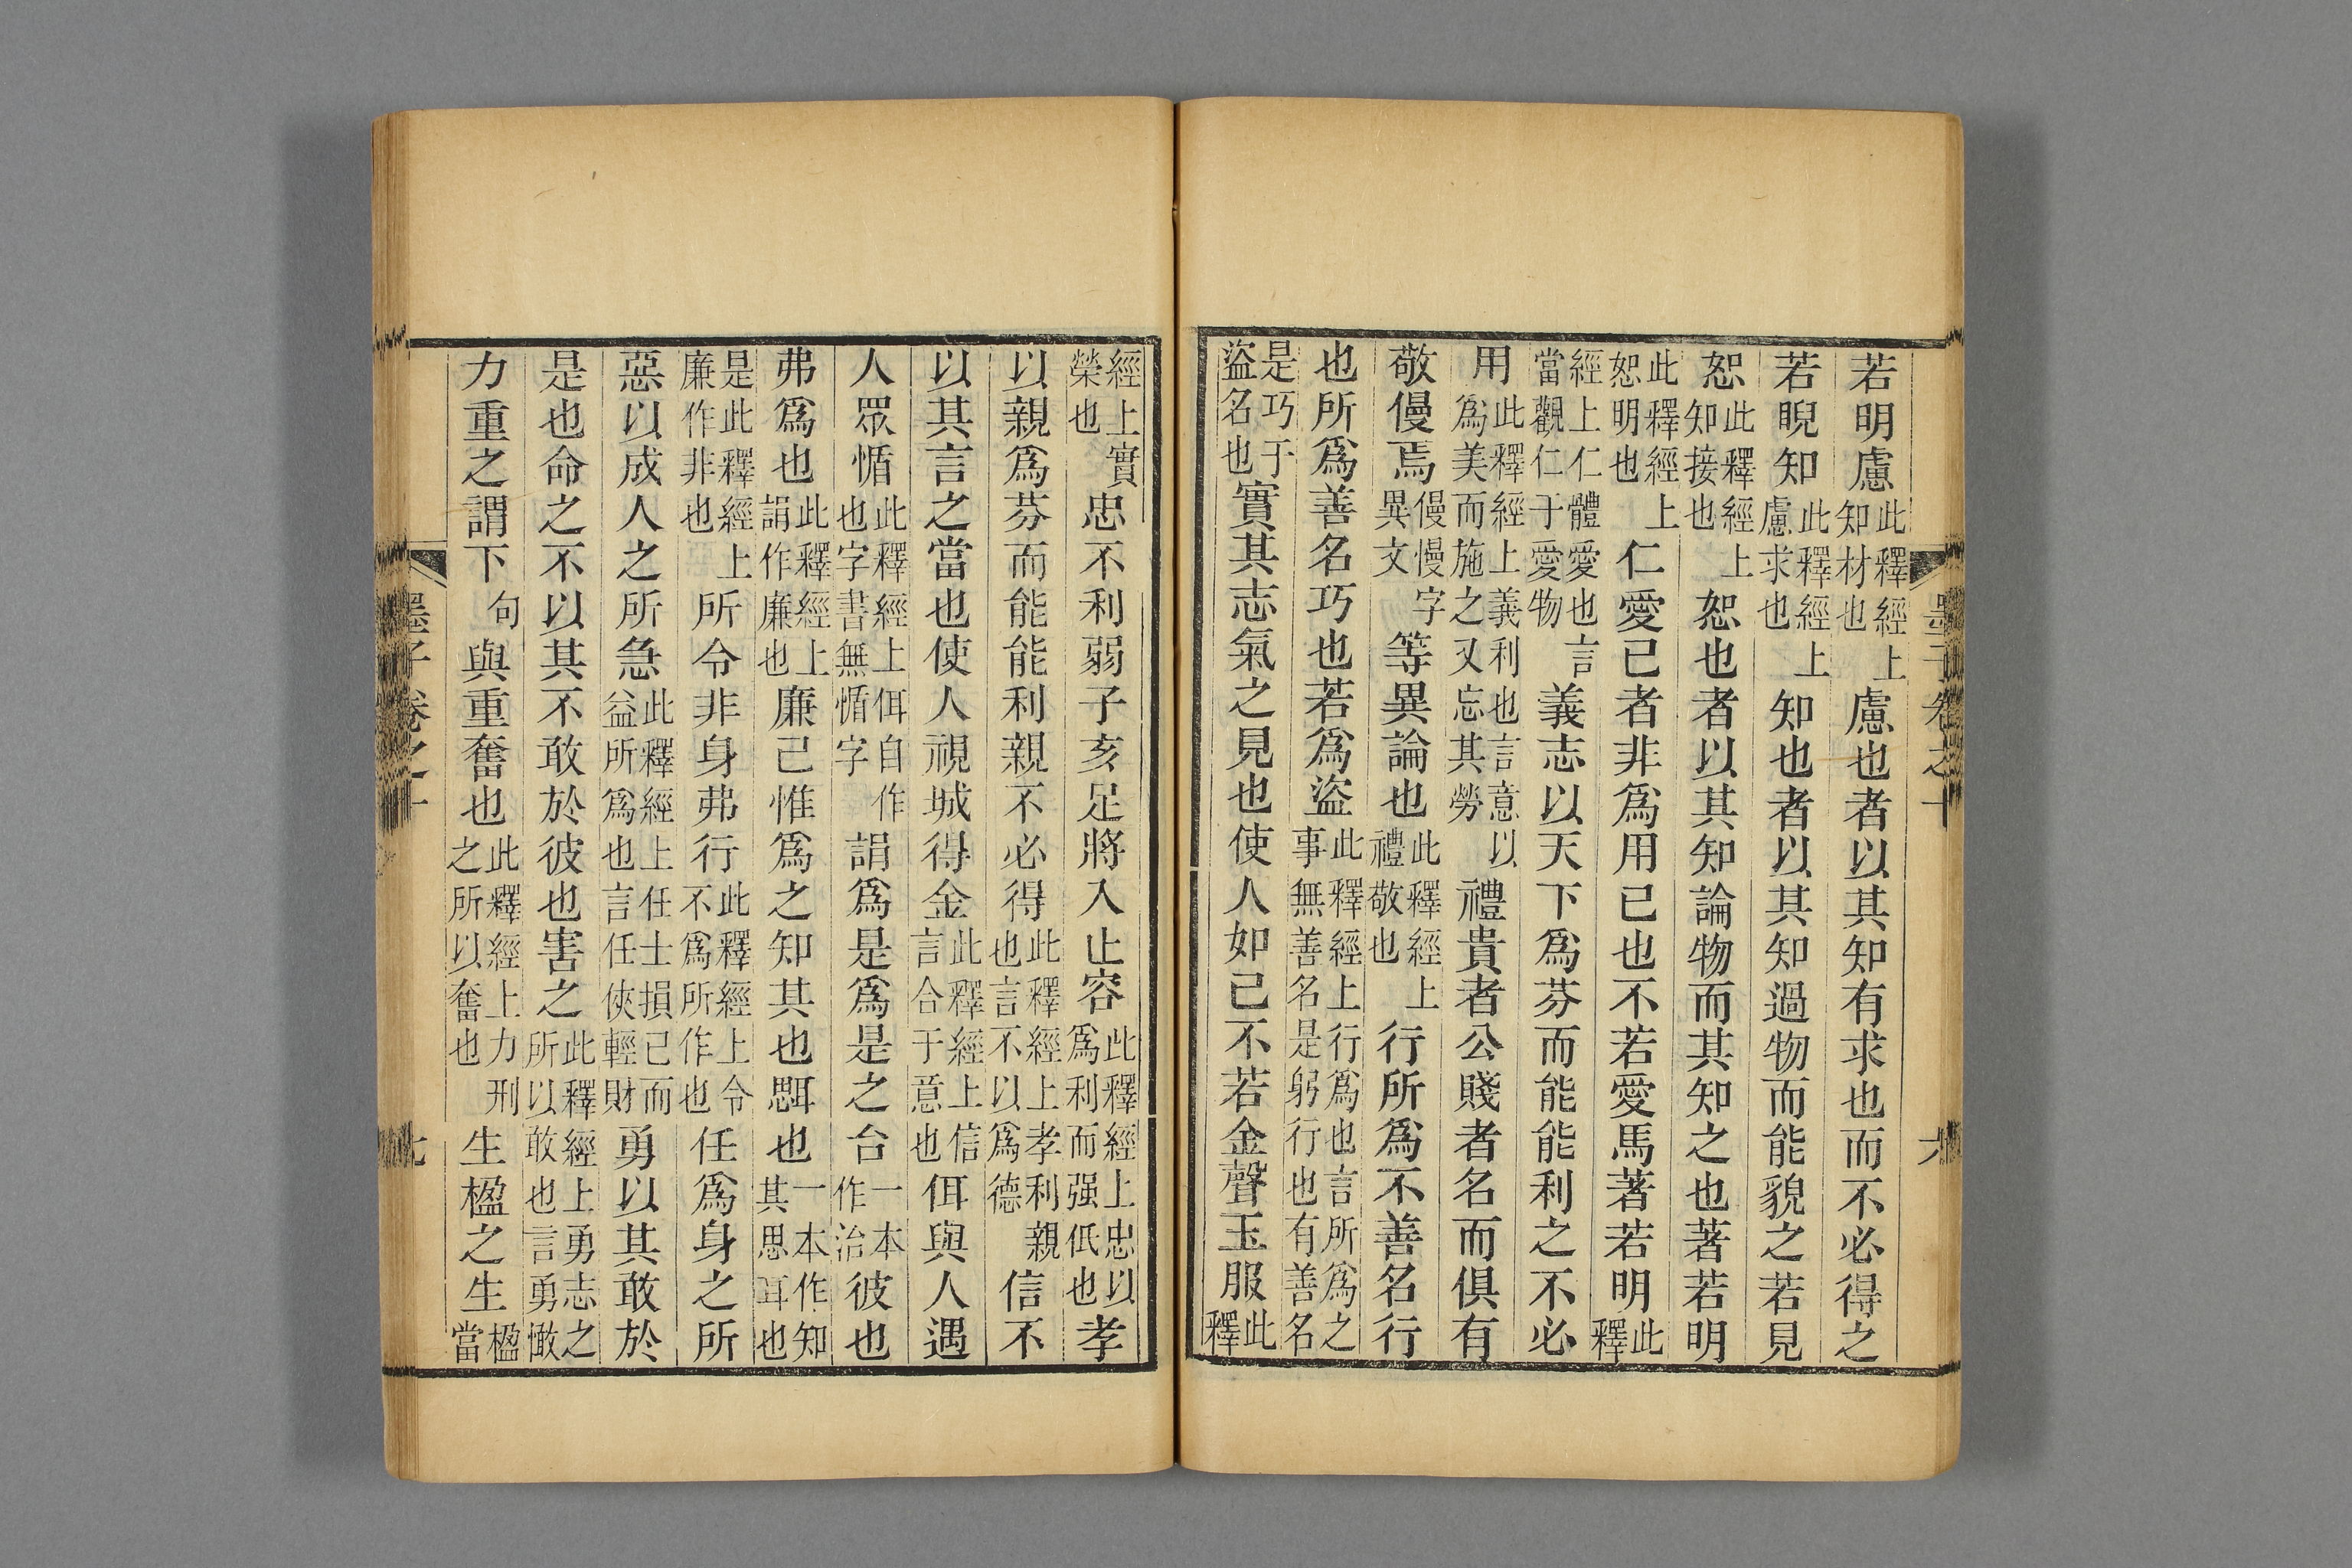 墨子卷之十 六
若明慮此釋經上知材也慮也者以其知有求也而不必得之
若睨知此釋經上慮求也知也者以其知過物而能貌之若見
恕此釋經上知接也恕也者以其知論物而其知之也著若明
此釋經上恕明也仁愛己者非爲用己也不若愛馬著若明此釋
經上仁體愛也言當觀仁于愛物義志以天下爲芬而能能利之不必
用此釋經上義利也言意以爲美而施之又忘其勞禮貴者公賤者名而俱有
敬僈焉僈慢字異文等異論也此釋經上禮敬也行所爲不善名行
也所爲善名巧也若爲盜此釋經上行爲也言所爲之事無善名是躬行也有善名
是巧于盜名也實其志氣之見也使人如己不若金聲玉服此釋
經上實榮也忠不利弱子亥足將入止容此釋經上忠以爲利而强低也孝
以親爲芬而能能利親不必得此釋經上孝利親也言不以爲德信不
以其言之當也使人視城得金此釋經上信言合于意也佴與人遇
人眾㥆此釋經上佴自作也字書無㥆字䛼爲是爲是之台一本作治彼也
弗爲也此釋經上䛼作廉也廉己惟爲之知其也𦖷也一本作知其思耳也
是此釋經上廉作非也所令非身弗行此釋經上令不爲所作也任爲身之所
惡以成人之所急此釋經上任士損己而益所爲也言任俠輕財勇以其敢於
是也命之不以其不敢於彼也害之此釋經上勇志之所以敢也言勇
力重之謂下句與重奮也此釋經上力刑之所以奮也生楹之生楹當
墨子卷之十 七